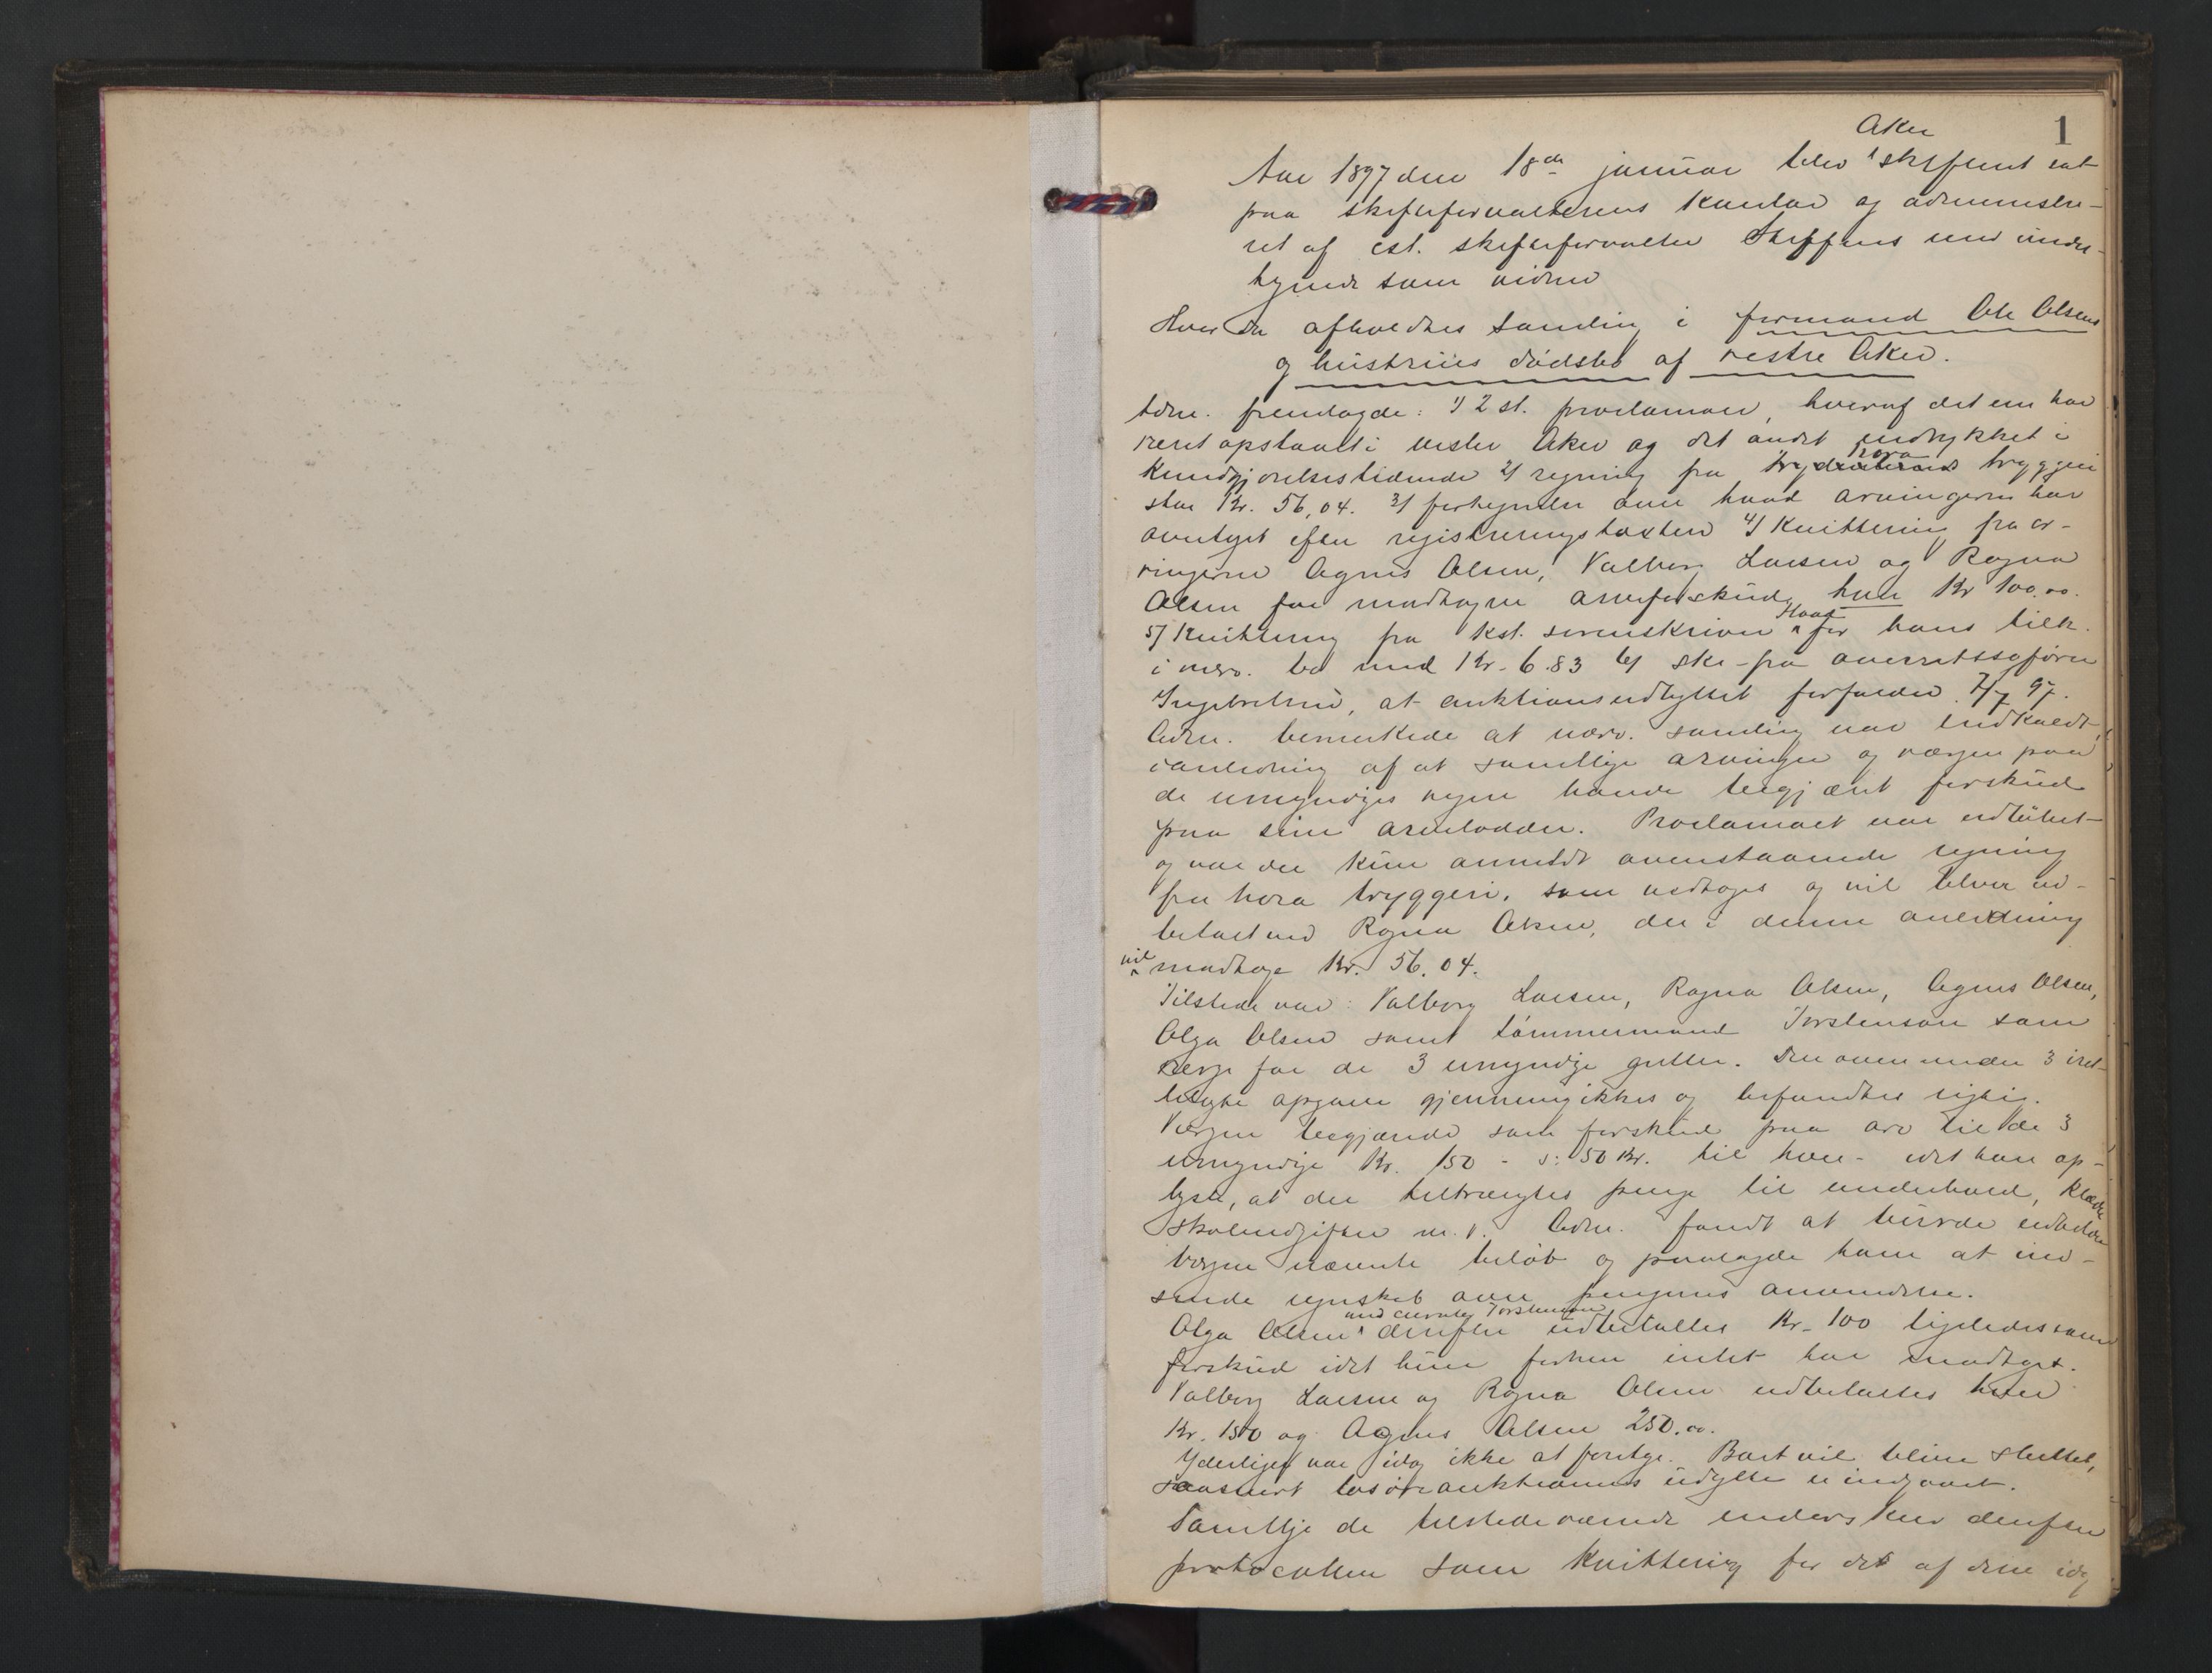 1
Aar 1897 den 18de januar blev Aker skifteret sat
paa skifteforvalterens kontor og administre-
ret af cst. skifteforvalter Steffens med under-
tegnede som vidner
Hvor da afholdtes samling i formand Ole Olsens
og hustrues dødsbo af vestre Aker.
Adm. fremlagde: 1/ 2 st. proclamaer, hvoraf det ene har
været opslaaet i vestre Aker og det andet indrykket i
Kundgjørelsestidende 2/ regning fra Nora bryggeri
stor Kr. 56,04. 3/ fortegnelse over hvad arvingerne har
overtaget efter registreringstaxten 4/ Kvittering fra ar-
vingerne Agnes Olsen, Valborg Larsen og Ragna
Olsen for modtagne arveforskud, hver Kr 100,00.
5/ Kvittering fra kst. sorenskriver Hoad for hans tilk.
i nærv. bo med Kr. 6.83 6/ skr. fra overretssagfører
Ingebretsen, at auktionsudbyttet forfalder 7/7 97.
Adm. bemerkede at nærv. samling var indkaldt
i anledning af at samtlige arvinger og værgen paa
de umyndiges vegne havde begjært forskud
paa sine arvelodder. Proclamaet var udløbet
og var der kun anmeldt ovenstaaende regning
fra Nora bryggeri, som vedtoges og vil bliver ud-
betalt ved Ragna Olsen, der i denne anledning
vil modtage Kr. 56.04.
Tilstede var: Valborg Larsen, Ragna Olsen, Agnes Olsen,
Olga Olsen samt tømmermand Torstensen som
verge for de 3 umyndige gutter. Den oven under 3 iret-
telagte opgave gjennemgikkes og befandtes rigtig.
Værgen begjærede som forskud paa arv til de 3
umyndige Kr. 150 - ɔ: 50 Kr. til hver - idet han op-
lyste, at der tiltrængtes penge til underhold, klæder
skoleudgifter m. v. Adm. fandt at burde udbetale
værgen nævnte beløb og paalagde ham at ind-
sende regnskab over pengenes anvendelse.
Olga Olsen med curator Torstensen derefter udbetaltes Kr. 100 ligeledes som
forskud idet hun forhen intet har modtaget.
Valborg Larsen og Ragna Olsen udbetaltes hver
Kr. 150 og Agnes Olsen 250.00.
Yderligere var idag ikke at foretage. Boet vil blive sluttet,
saasnart løsøreauktionens udbytte er indgaaet.
Samtlige de tilstedeværende underskrev derefter
protocollen som Kvittering for det af dem idag